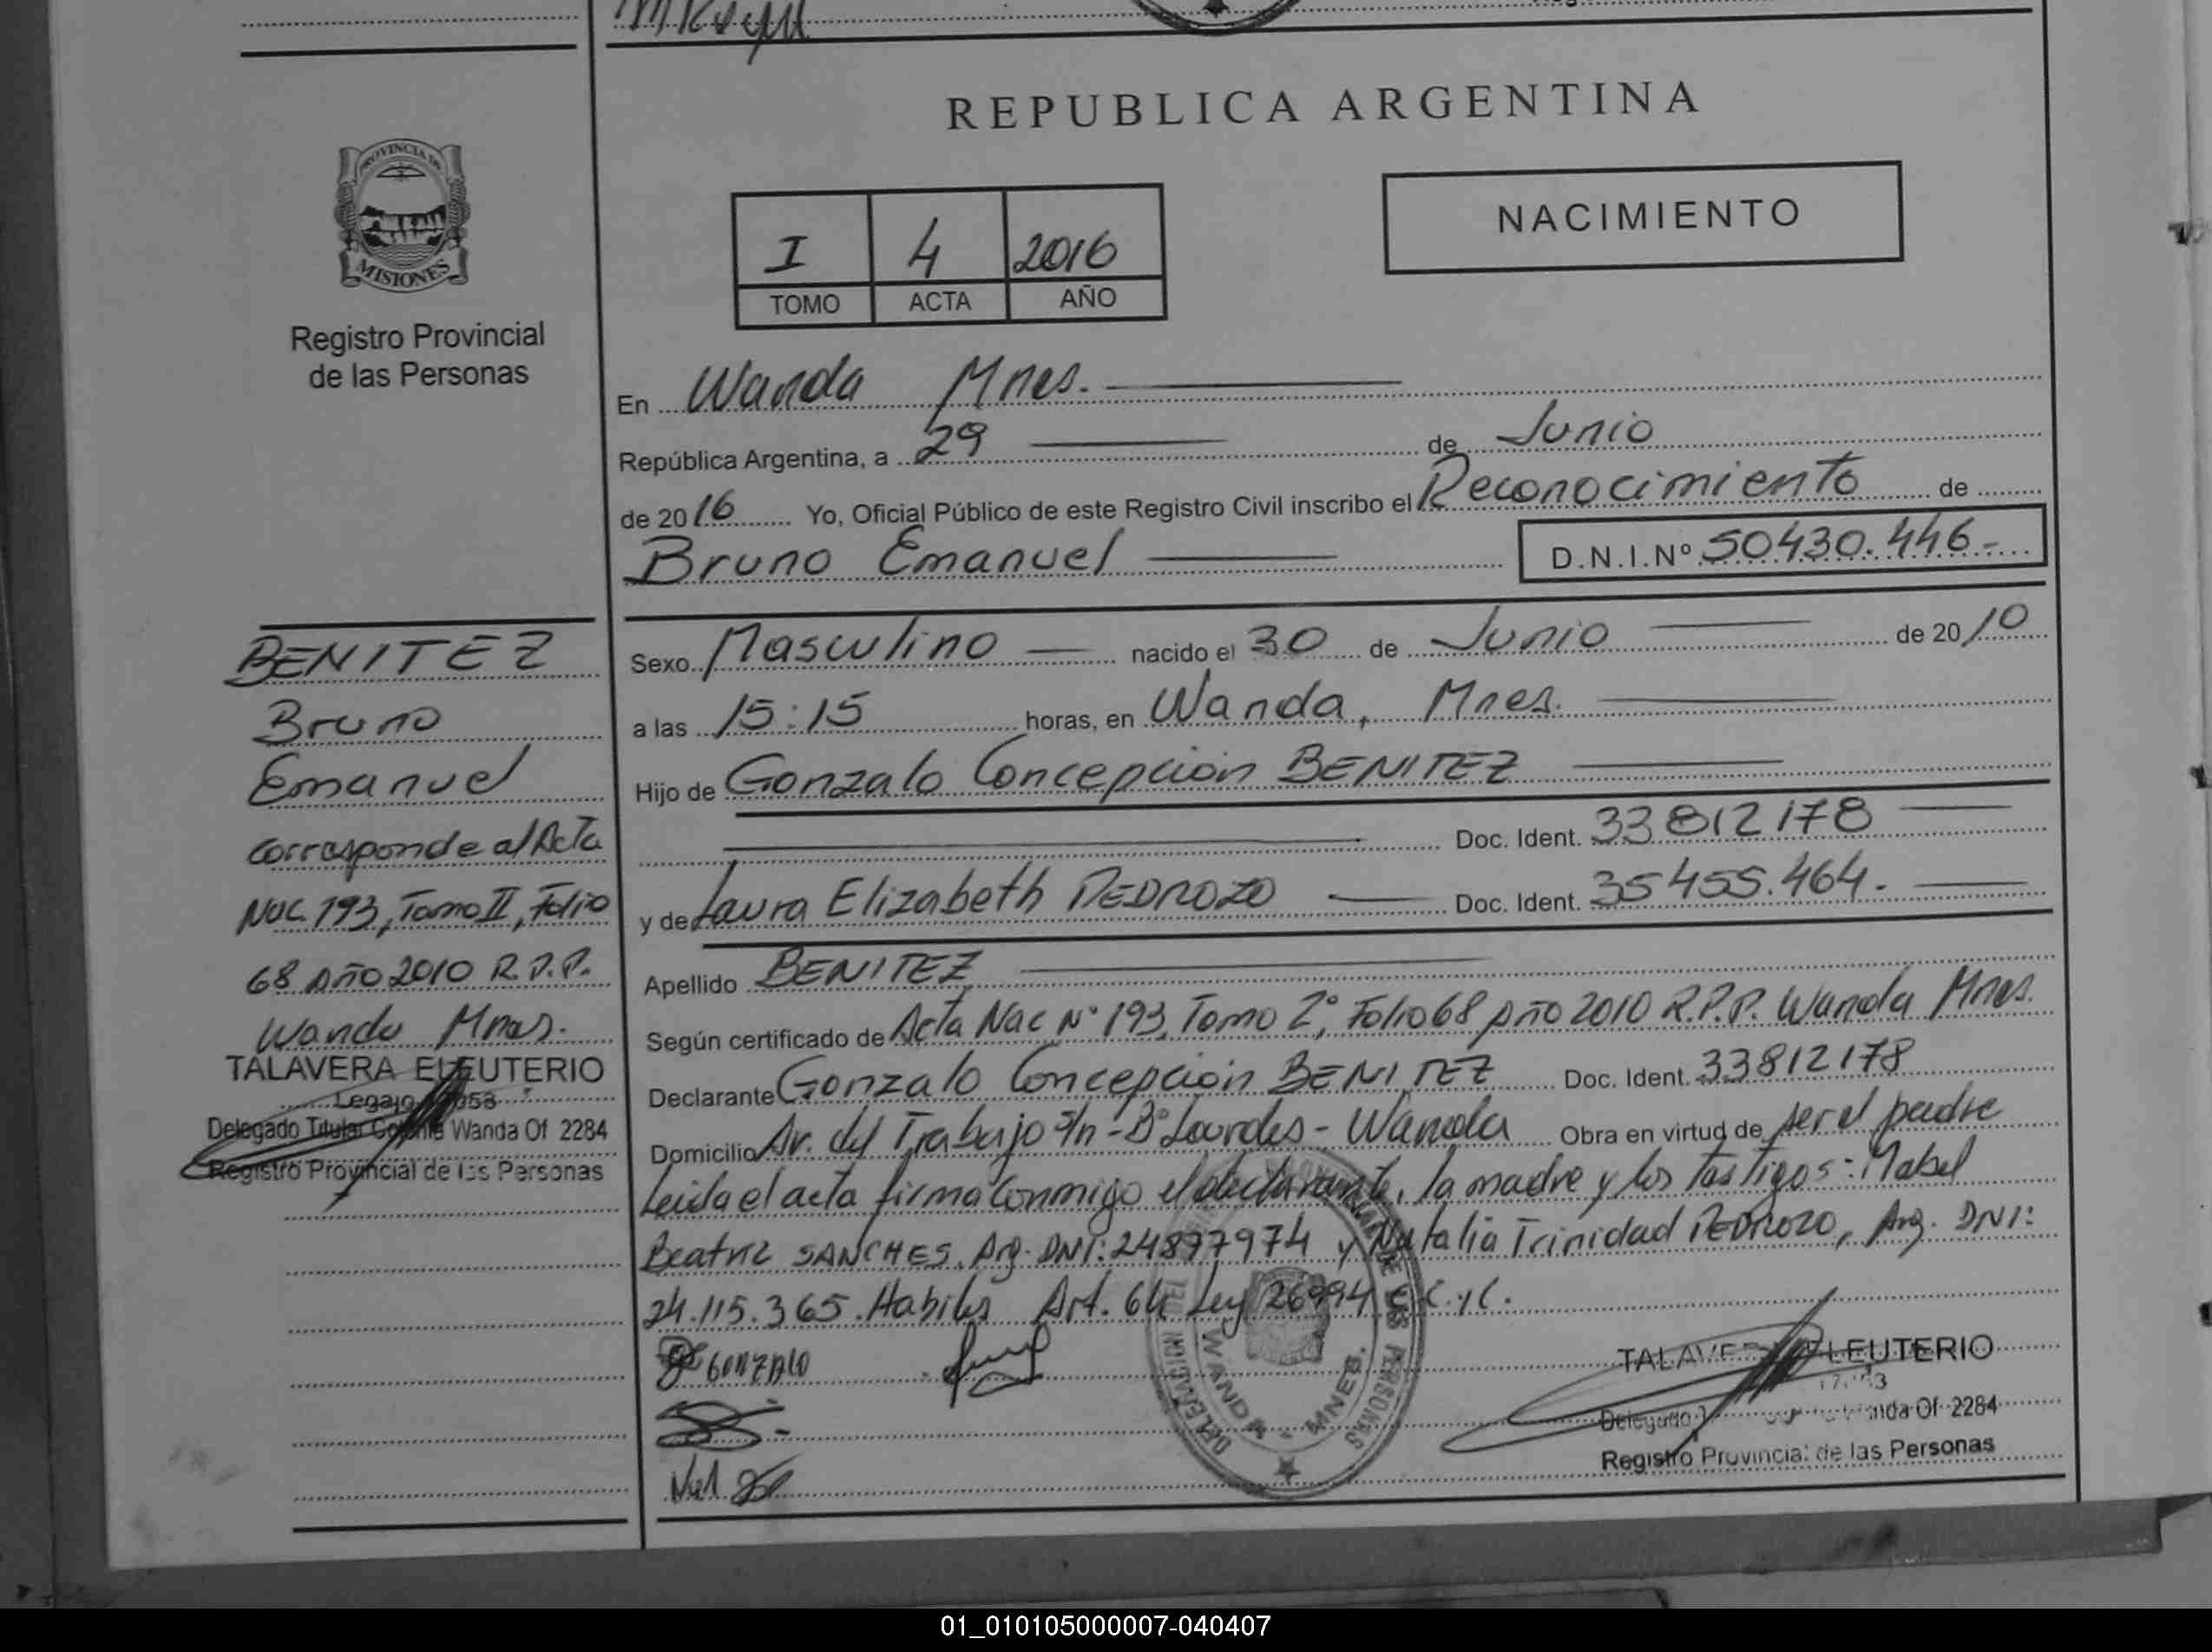 REPUBLICA ARGENTINA
PROVINCIA DE
MISIONES
Registro Provincial
de las Personas
NACIMIENTO
I 4 2016
TOMO ACTA AÑO
En Wanda Mnes.
República Argentina, a 29 de Junio
de 2016 Yo, Oficial Público de este Registro Civil inscribo el Reconocimiento de
Bruno Emanuel D.N.I.Nº 50430.446-
Sexo Masculino nacido el 30 de Junio de 2010
a las 15:15 horas, en Wanda, Mnes.
Hijo de Gonzalo Concepción BENITEZ
Doc. Ident. 33812178
y de Laura Elizabeth PEDROZO Doc. Ident. 35455.464.
Apellido BENITEZ
Según certificado de Acta Nac Nº 193, Tomo 2º, Folio 68 Año 2010 R.P.P. Wanda Mnes.
Declarante Gonzalo Concepción BENITEZ Doc. Ident. 33812178
Domicilio Av. del Trabajo S/n - Bº Lourdes - Wanda Obra en virtud de ser el padre
Leida el acta firma conmigo el declarante, la madre y los testigos: Mabel
Beatriz SANCHES, Arg. DNI: 24897974 y Natalia Trinidad PEDROZO, Arg. DNI:
24.115.365. Habiles Art. 64 Ley 26994 C.C.yC.
GONZALO
BENITEZ
Bruno
Emanuel
Corresponde al Acta
Nac. 193, Tomo II, Folio
68 Año 2010 R.P.P.
Wanda Mnes.
TALAVERA ELEUTERIO
Legajo
Delegado Titular Colonia Wanda Of 2284
Registro Provincial de las Personas
WANDA - MNES.
TALAVERA ELEUTERIO
Delegado Wanda Of 2284
Registro Provincial de las Personas
01_010105000007-040407